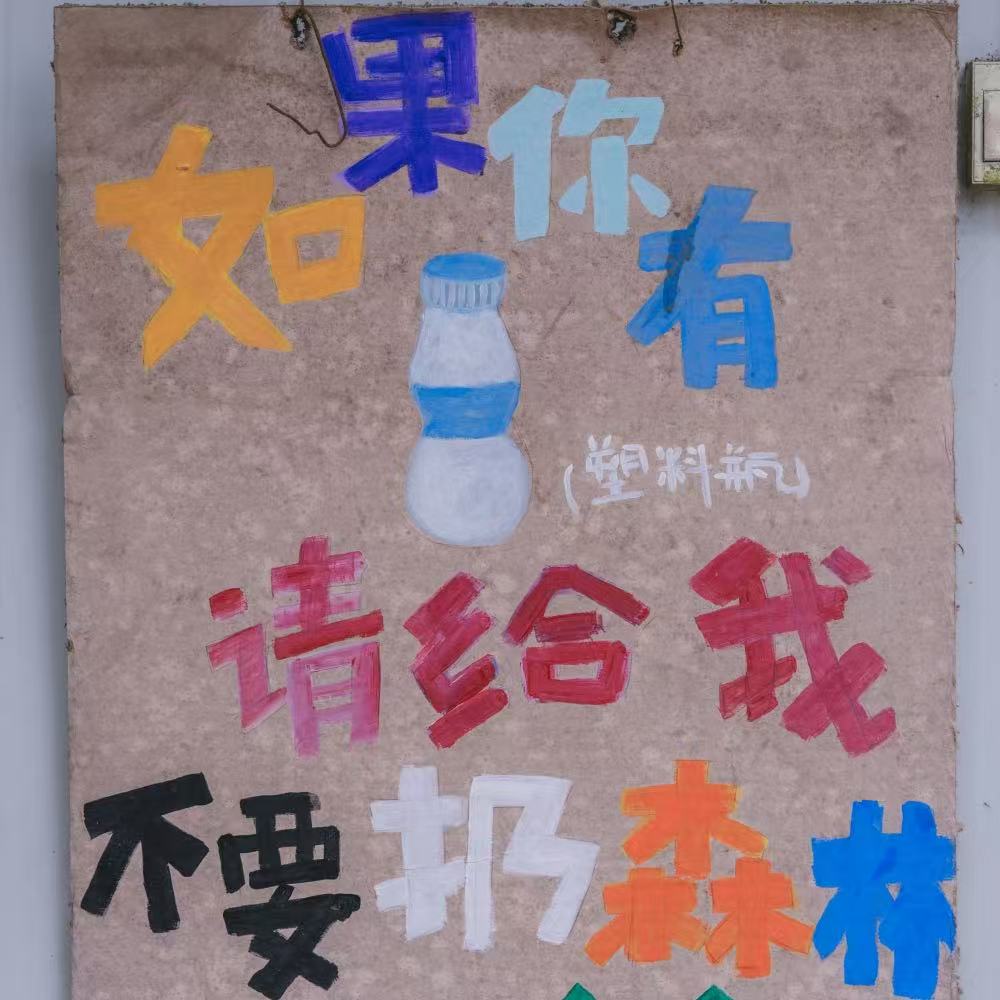 如果你有
(塑料瓶)
请给我
不要扔森林